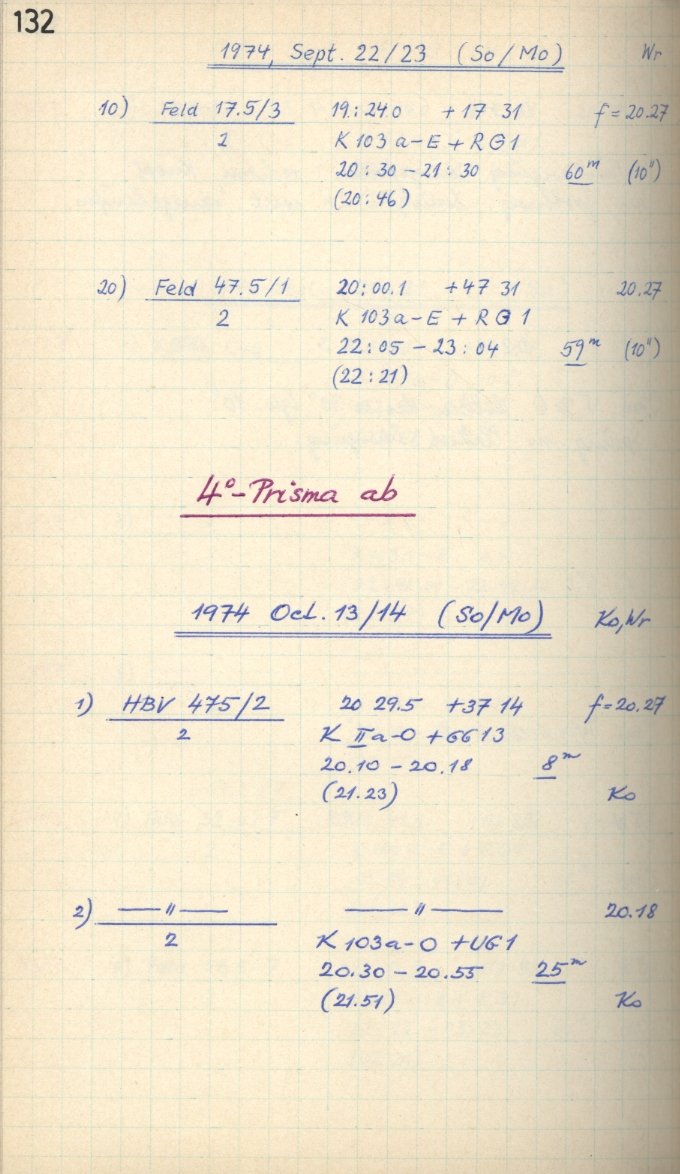 132
1974, Sept. 22/23 (So/Mo) Wr
10) Feld 17.5/3 19:24.0 +17 31 f=20.27
2 K 103 a-E + RG1
20:30 - 21:30 60ᵐ (10")
(20:46)
20) Feld 47.5/1 20:00.1 +47 31 20.27
2 K 103 a-E + RG1
22:05 - 23:04 59ᵐ (10")
(22:21)
4°-Prisma ab
1974 Oct. 13/14 (So/Mo) Ko, Wr
1) HBV 475/2 20 29.5 +37 14 f=20.27
2 K II a-O + GG13
20.10 - 20.18 8ᵐ
(21.23) Ko
2) —— " —— —— " —— 20.18
2 K 103a-O + UG1
20.30 - 20.55 25ᵐ
(21.51) Ko